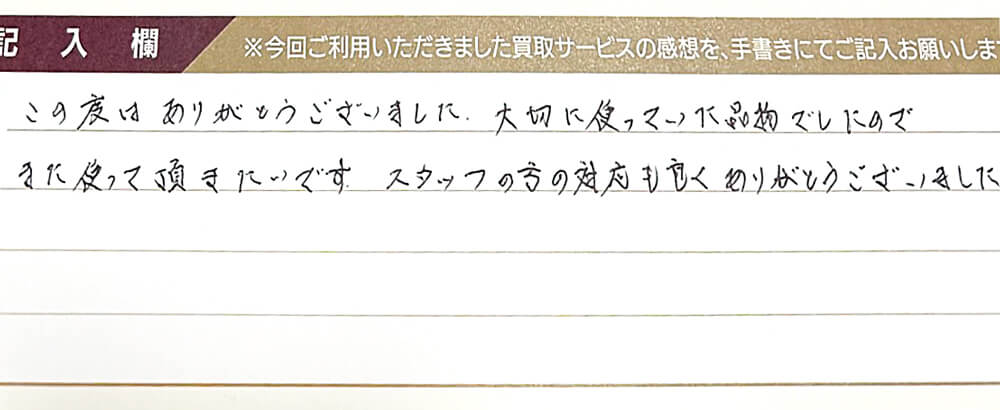 記入欄 ※今回ご利用いただきました買取サービスの感想を、手書きにてご記入お願いしま
この度は ありがとうございました. 大切に使っていた品物でしたので
また使って頂きたいです. スタッフの方の対応も良く ありがとうございました